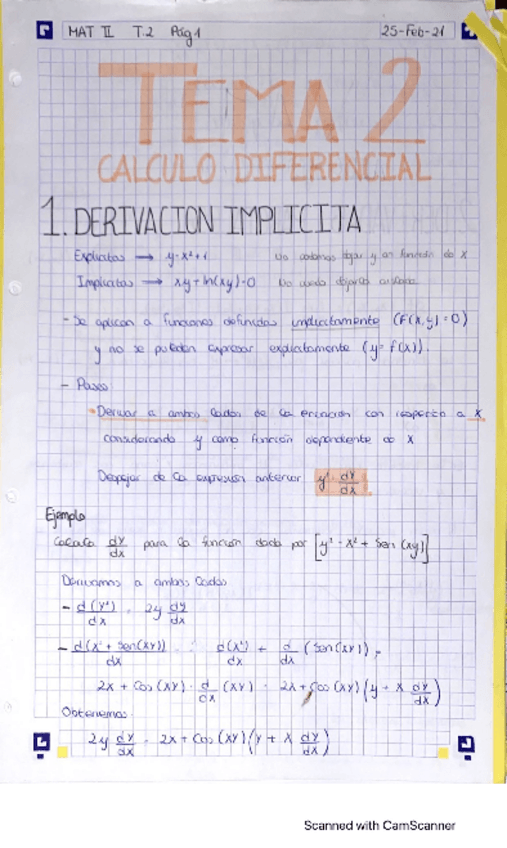 MAT II T.2 Pág 1 25-Feb-21
TEMA 2
CALCULO DIFERENCIAL
1. DERIVACION IMPLICITA
Explicitas → y=x²+1 No podemos dejar y en función de x
Implicitas → xy+ln(xy)=0 No puedo dejarla
- Se aplican a funciones definidas implicitamente (F(x,y)=0)
y no se pueden expresar explicitamente (y=f(x)).
- Pasos
• Derivar a ambos lados de la ecuación con respecto a x
considerando y como función dependiente de x
Despejar de la expresión anterior y' = dy/dx
Ejemplo
Calcula dy/dx para la función dada por [y² = x² + sen (xy)]
Derivamos a ambos lados
- d(y²)/dx = 2y dy/dx
- d(x² + sen(xy))/dx = d(x²)/dx + d/dx (sen(xy)) =
2x + cos (xy) · d/dx (xy) = 2x + cos (xy) (y + x dy/dx)
Obtenemos
2y dy/dx = 2x + cos (xy) (y + x dy/dx)
Scanned with CamScanner